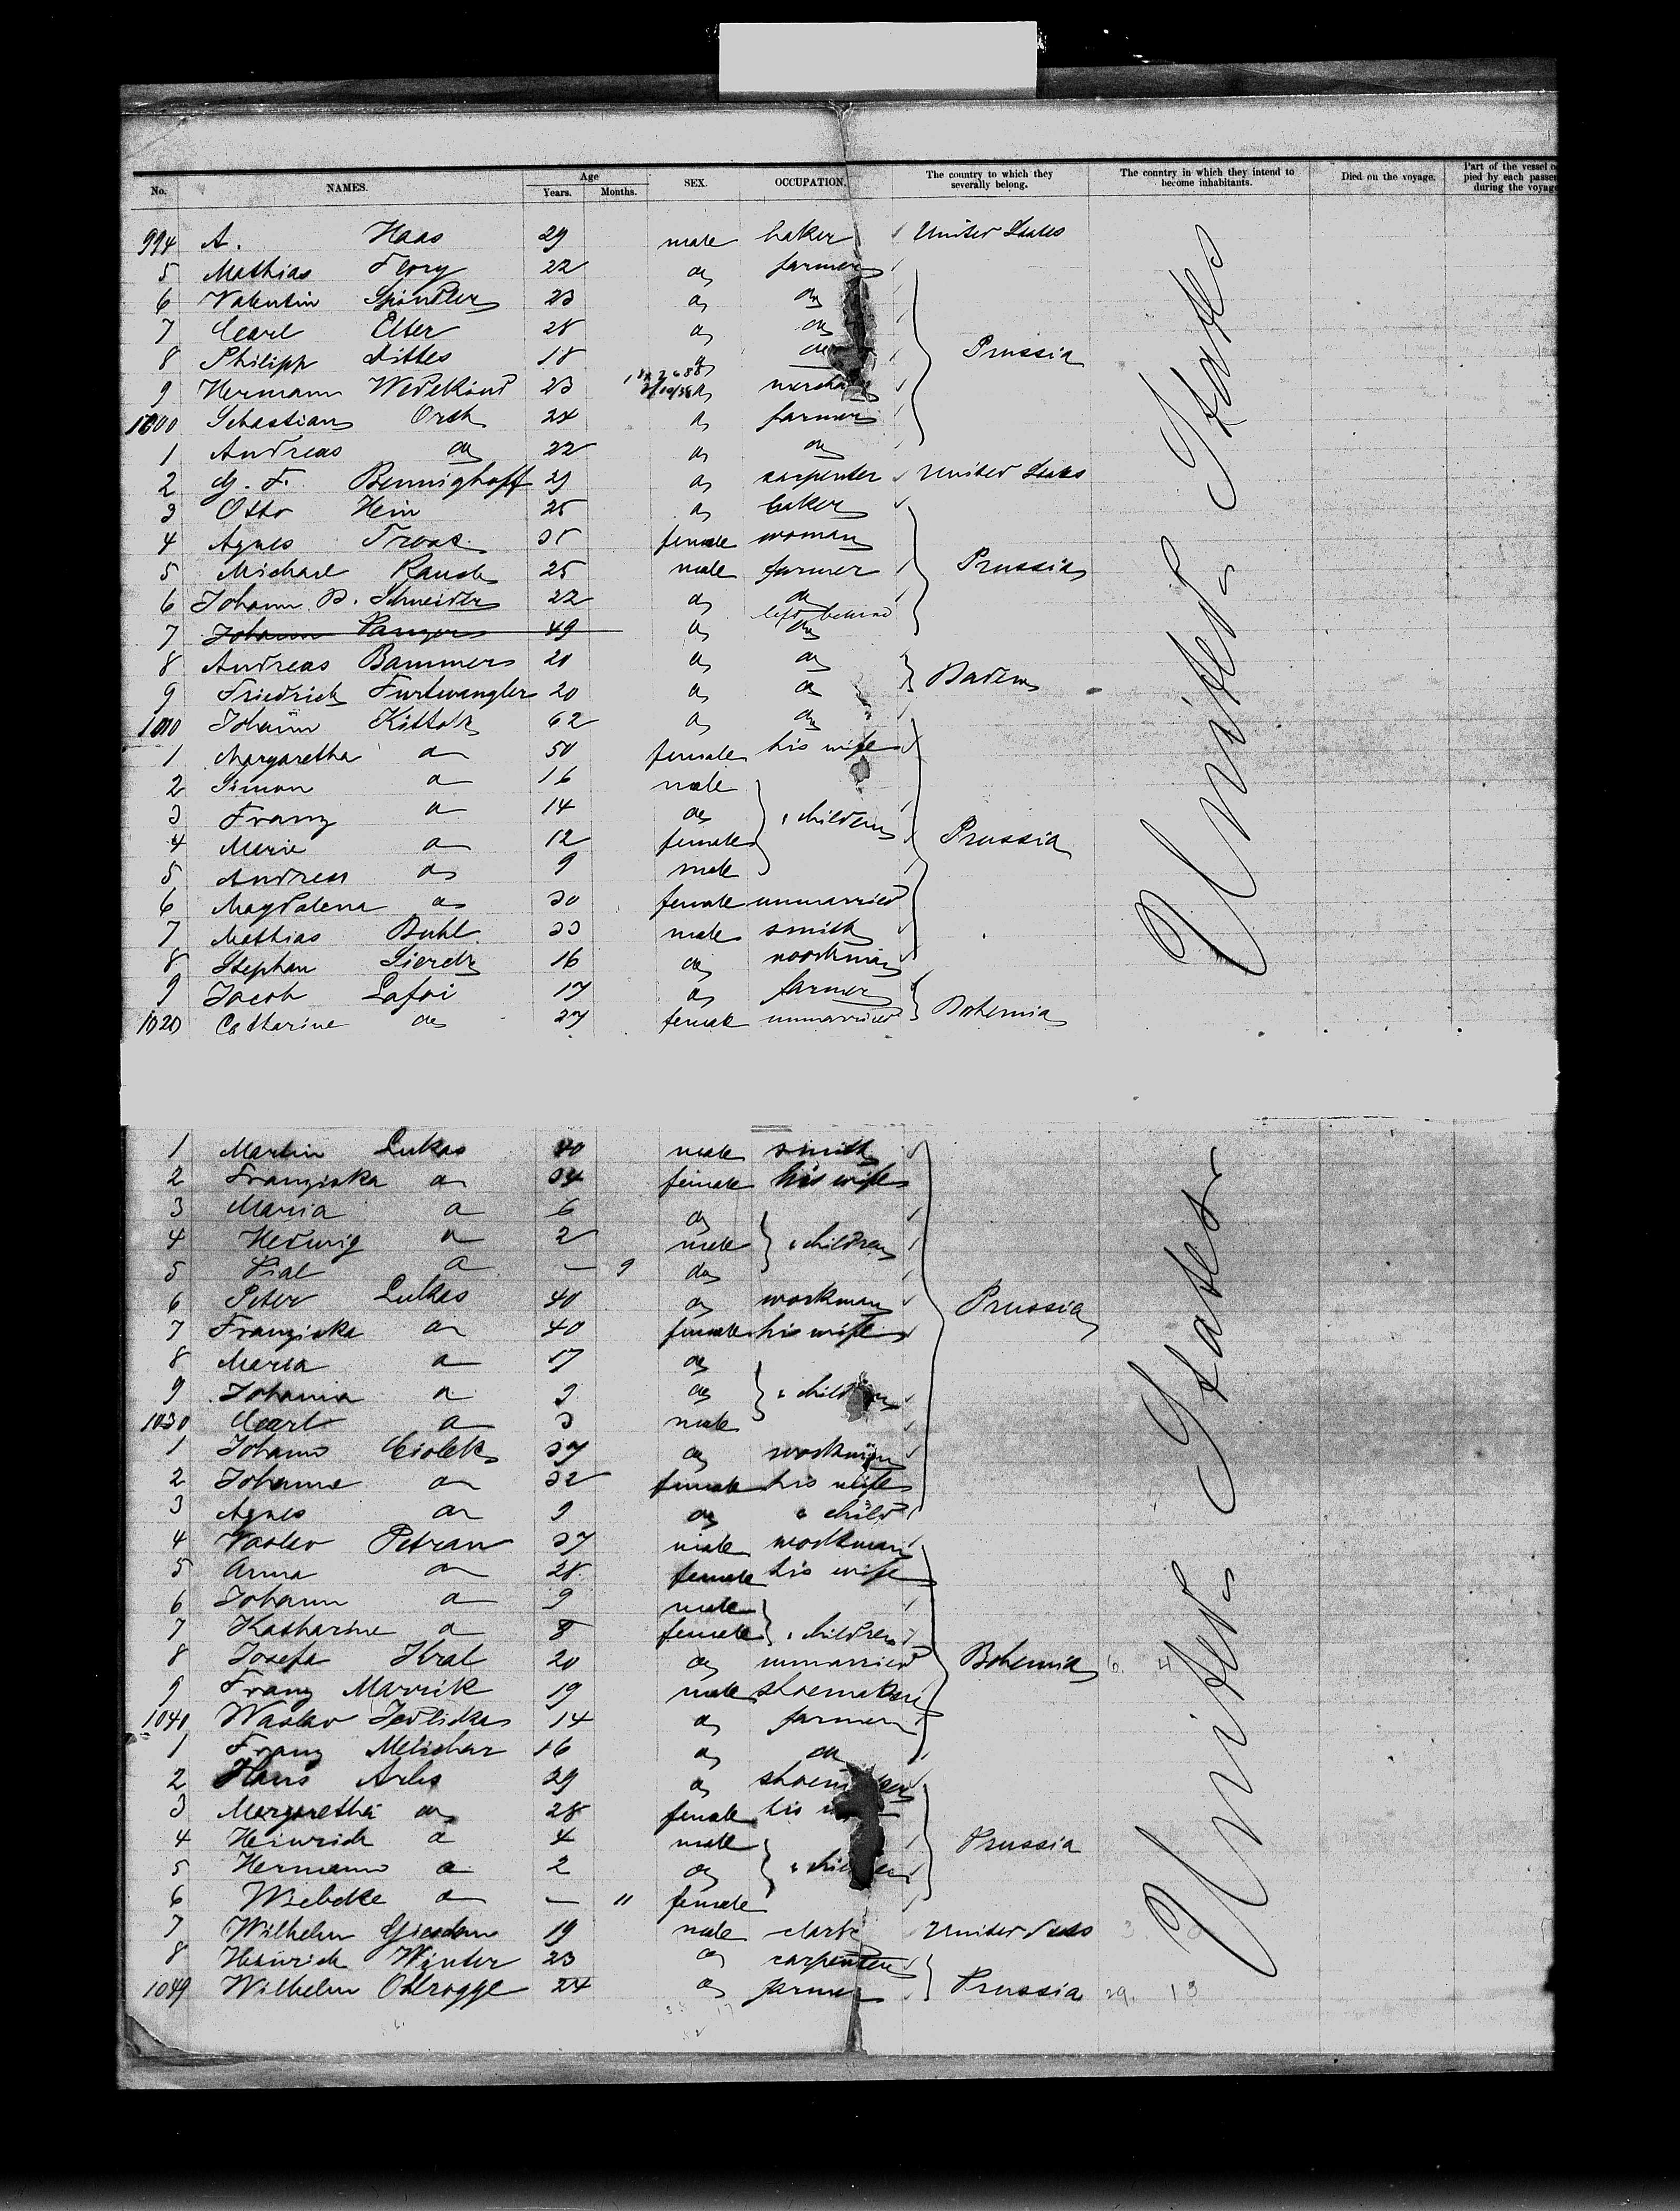 No. NAMES. Age Years. Months. SEX. OCCUPATION. The country to which they severally belong. The country in which they intend to become inhabitants. Died on the voyage. Part of the vessel o pied by each passen during the voyage
994 A. Haas 29 male baker United States
5 Mathias Flory 22 do farmer
6 Valentin Spindler 23 do do
7 Carl Elter 28 do do
8 Philipp Dittes 18 do do Prussia
9 Hermann Wedekind 23 do merchant
1000 Sebastian Orth 24 do farmer
1 Andreas do 22 do do
2 G. F. Benninghoff 29 do carpenter United States
3 Otto Hein 25 do baker
4 Agnes female woman
5 Michael Rausch 25 male farmer Prussia
6 Johann P. Schneider 22 do do
left behind
7 Johann 49 do do
8 Andreas Bammer 20 do do Baden
9 Friedrich Furtwangler 20 do do
1010 Johann 62 do do
1 Margaretha do 50 female his wife
2 Simon do 16 male
3 Franz do 14 do " children
4 Marie do 12 female Prussia
5 Andreas do 9 male
6 Magdalena do 30 female unmarried
7 Mathias Buhl 33 male smith
8 Stephan Sierck 16 do workman
9 Jacob Lafoi 17 do farmer Bohemia
1020 Catharine do 27 female unmarried
United States
1 Martin Lukas 40 male smith
2 Franziska do 34 female his wife
3 Maria do 6 do
4 Hedwig do 2 male " children
5 do — 9 do
6 Peter Lukas 40 do workman Prussia
7 Franziska do 40 female his wife
8 Maria do 17 do
9 Johanna do 9 do " children
1030 Carl do 3 male
1 Johann Ciolek 37 do workman
2 Johanna do 32 female his wife
3 Agnes do 9 do " child
4 Vaclav Petran 37 male workman
5 Anna do 28 female his wife
6 Johann do 9 male
7 Katharine do 8 female " children
8 Josefa Kral 20 do unmarried Bohemia 6. 4
9 Franz Mavrik 19 male shoemaker
1040 Waclav Jedlicka 14 do farmer
1 Franz Melichar 16 do do
2 Hans Arlis 29 do shoemaker
3 Margaretha do 28 female his
4 Heinrich do 4 male Prussia
5 Hermann do 2 do " children
6 Wiebcke do — 11 female
7 Wilhelm 19 male clark United States
8 Heinrich Winter 23 do carpenter
1049 Wilhelm Ottrogge 24 do farmer Prussia 29. 13
United States